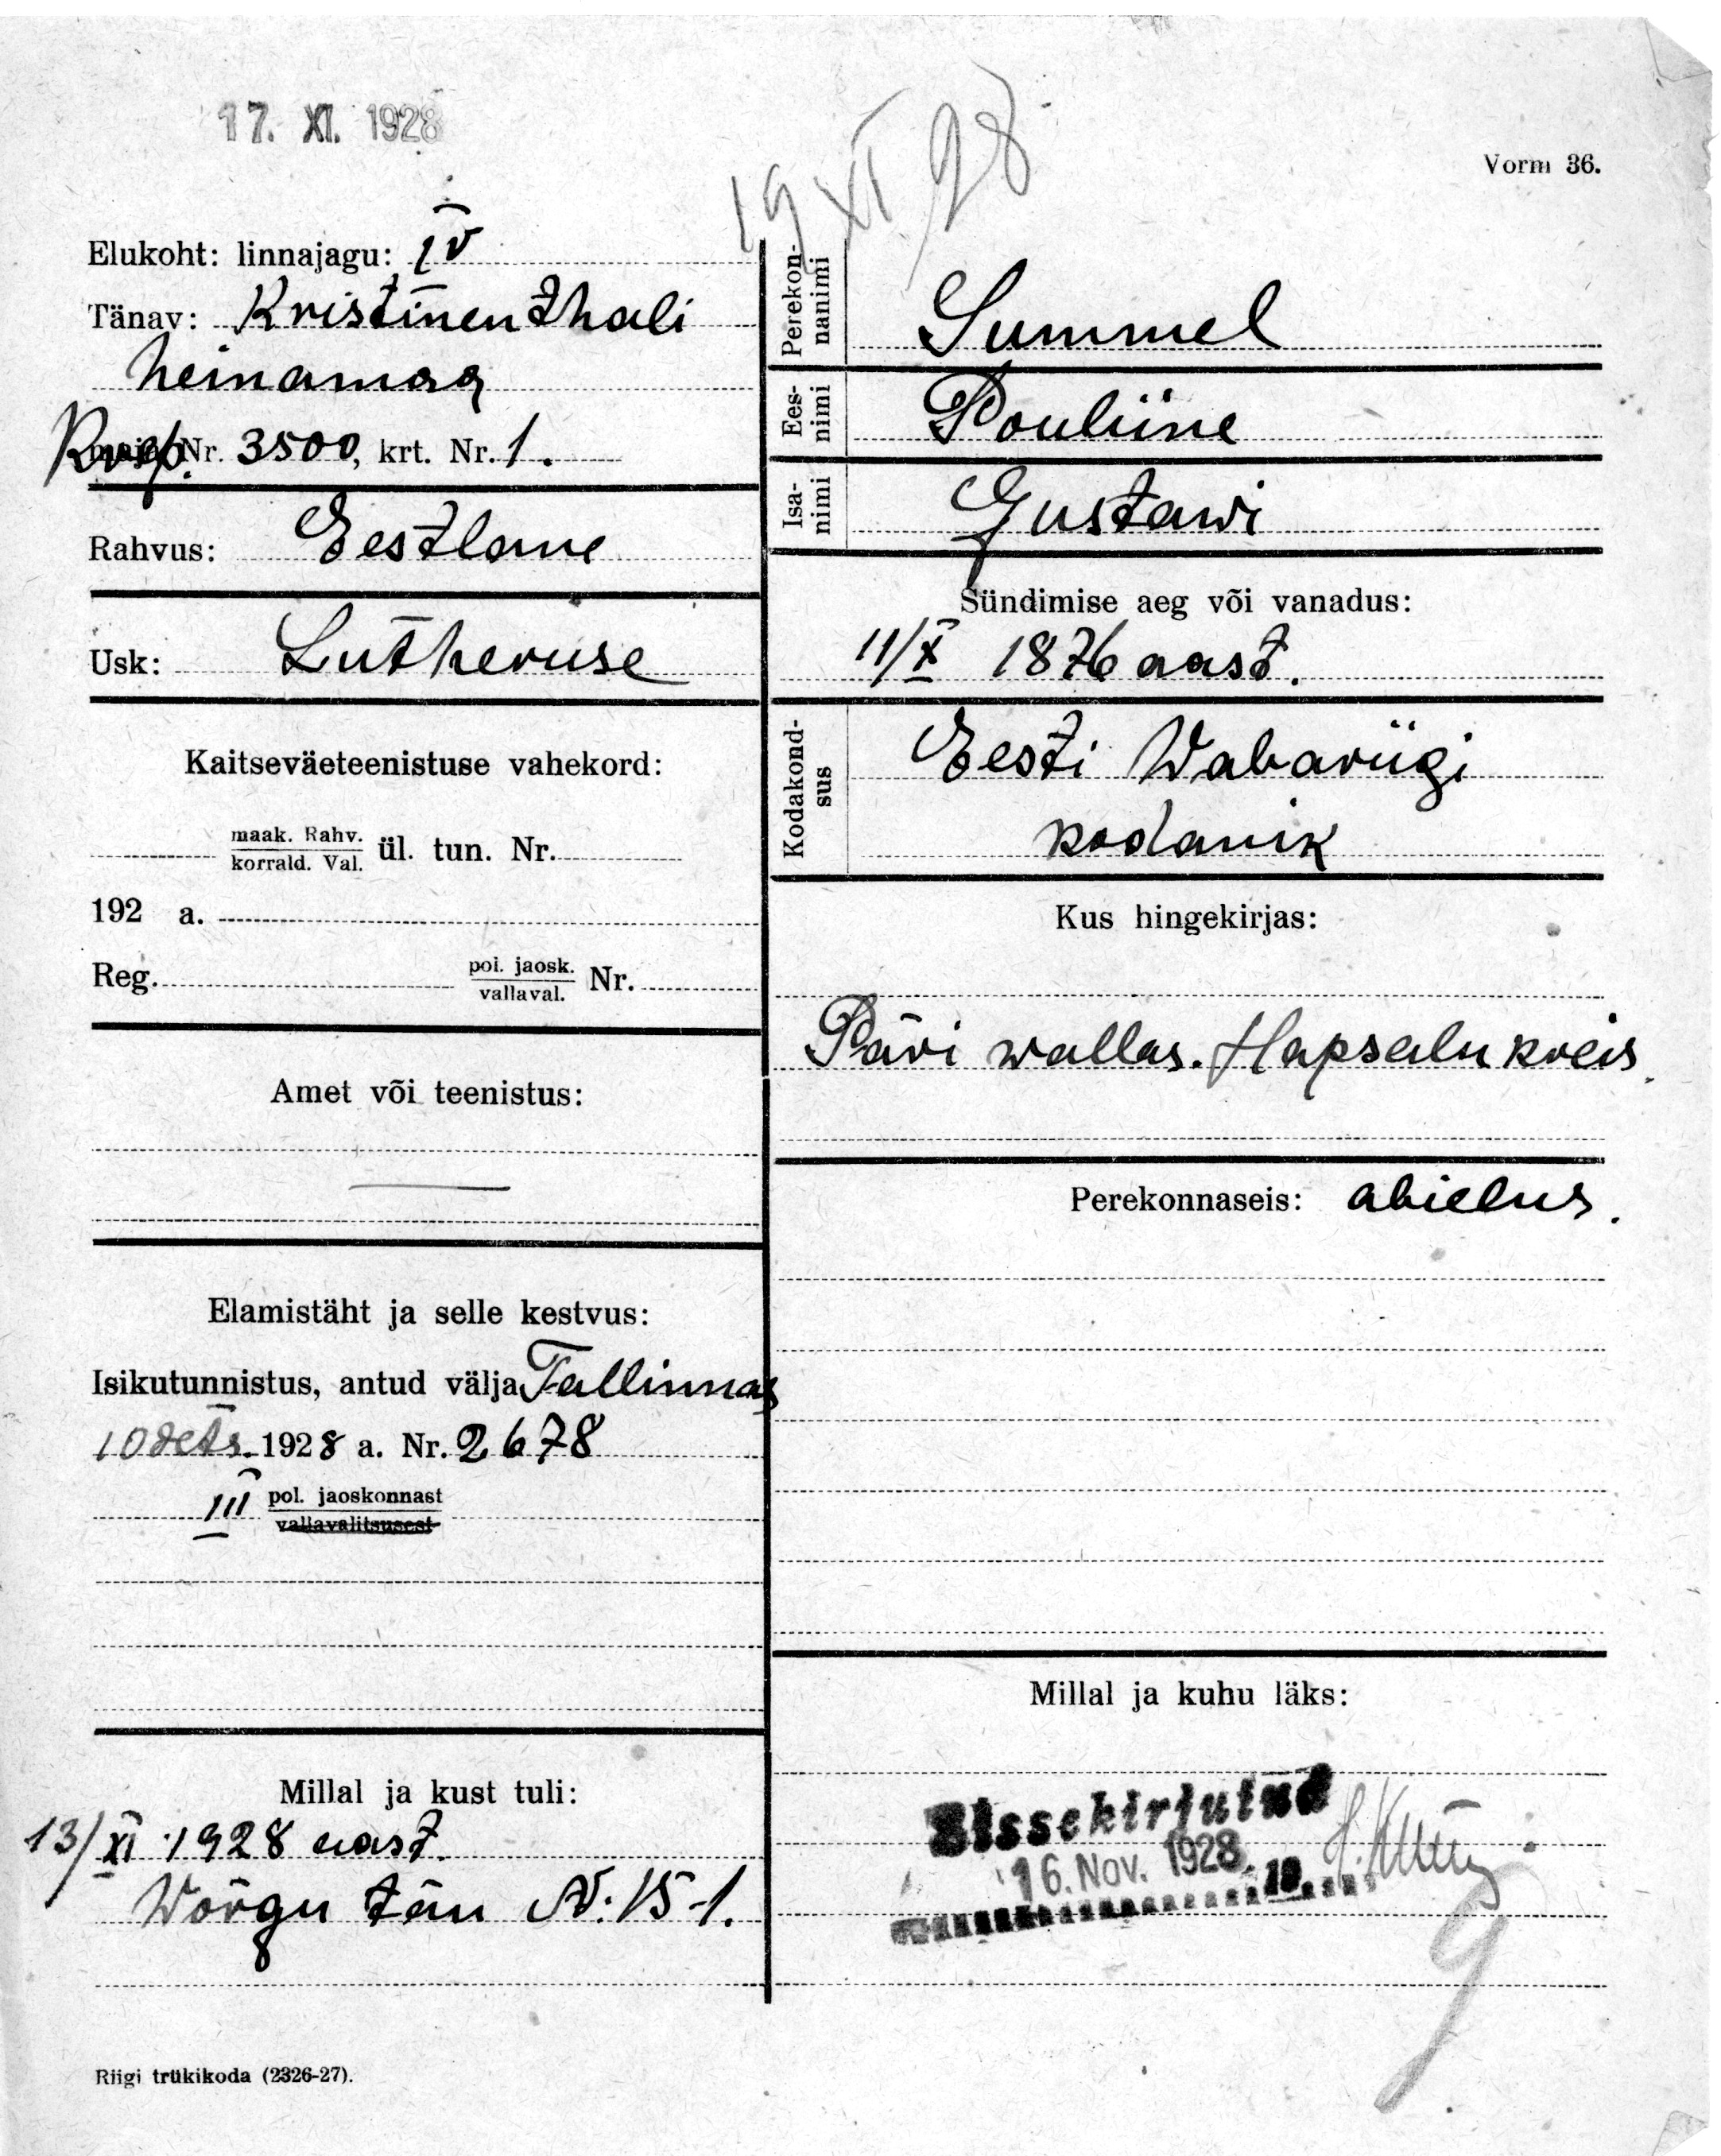 17. XI. 1928
19 XI 28
Vorm 36.
Elukoht: linnajagu: IV
Tänav: Kristinenthali
heinamaa
Krep. Nr. 3500, krt. Nr. 1.
Rahvus: Eestlane
Usk: Lutheruse
Kaitseväeteenistuse vahekord:
maak. Rahv.
korrald. Val. ül. tun. Nr.
192 a.
Reg. poi. jaosk.
vallaval. Nr.
Amet või teenistus:
Elamistäht ja selle kestvus:
Isikutunnistus, antud välja Tallinnas
10 dets. 1928 a. Nr. 2678
III pol. jaoskonnast
vallavalitsusest
Millal ja kust tuli:
13/XI 1928 aast.
Wõrgu tän N: 15-1.
Riigi trükikoda (2326-27).
Perekonnanimi Summel
Eesnimi Pouliine
Isanimi Gustawi
Sündimise aeg või vanadus:
11/X 1876 aast.
Kodakondsus Eesti Wabariigi
kodanik
Kus hingekirjas:
Päri wallas. Hapsalu kreis.
Perekonnaseis: abielus.
Millal ja kuhu läks:
Sissekirjutud
16. Nov. 1928 19